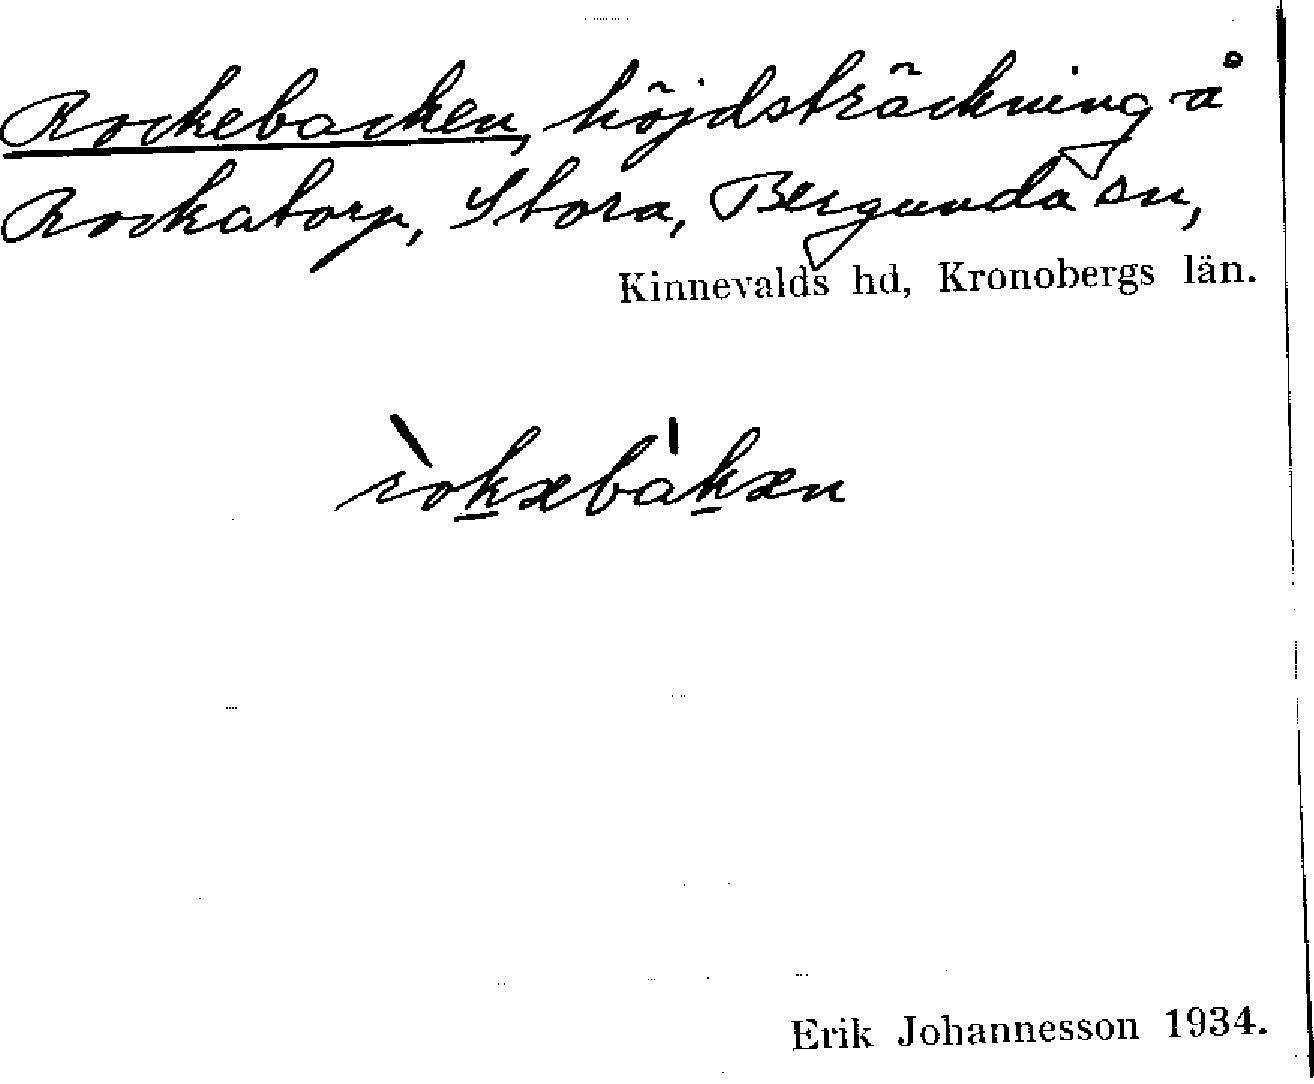 Rockebacken, höjdsträckning å
Rockatorp, Stora, Bergunda sn,
Kinnevalds hd, Kronobergs län.
ròkæbákæn
Erik Johannesson 1934.